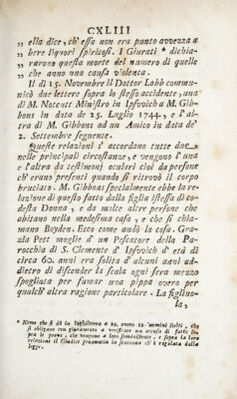 CXLIII
„ ella dice, ch'essa non era punto avvezza a
„ bere liquori spiritosi. I Giurati * dichia-
„ rarono questa morte del numero di quelle
„ che anno una causa violenta.
Il dì 15. Novembre il Dottor Lobb comu-
nicò due lettere sopra lo stesso accidente, una
di M. Notcutt Ministro in Ipswich a M. Gib-
bons in data de 25. Luglio 1744., e l'al-
tra di M. Gibbons ad un Amico in data de'
2. Settembre seguente.
Queste relazioni s'accordano tutte due
nelle principali circostanze, e vengono l'una
e l'altra da testimonj oculari cioè da persone
ch'erano presenti quando si ritrovò il corpo
bruciato. M. Gibbons specialmente ebbe la re-
lazione di questo fatto dalla figlia istessa di co-
desta Donna, e da molte altre persone che
abitano nella medesima casa, e che si chia-
mano Boyden. Ecco come andò la cosa. Gra-
zia Pett moglie d'un Pescatore della Pa-
rocchia di S. Clemente d'Ipswich d'età di
circa 60. anni era solita d'alcuni anni ad-
dietro di discender la scala ogni sera mezzo
spogliata per fumar una pippa overo per
qualch'altra ragione particolare. La figliuo-
la,
* Nome che si dà in Inghilterra a 12. overo 12 uomini scelti, che
si obligano con giuramento a verificare un accusa di fatto so-
pra le prove, che vengono a loro somministrate, e sopra la loro
relazione il Giudice pronunzia la sentenza ch'è regolata dalla
legge.